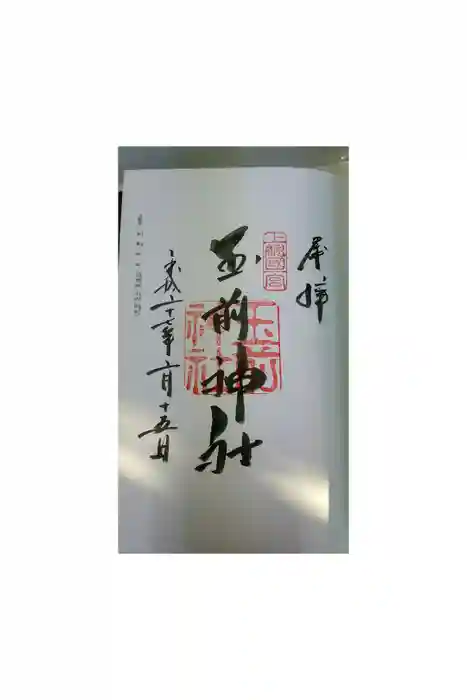 奉拝
上総国一宮
玉前神社
玉前神社
平成二十七年二月十五日